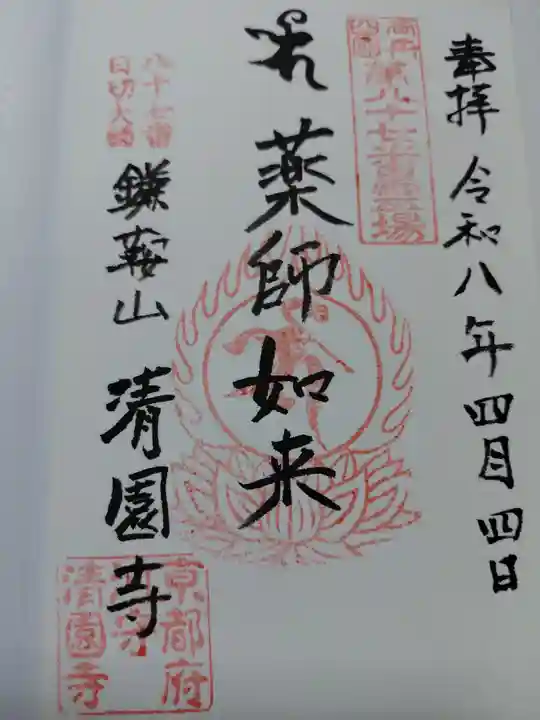 奉拝 令和八年四月四日
高野山
四国
第八十七番霊場
薬師如来
八十七番
日切大師
鎌鞍山 清園寺
京都府
清園寺